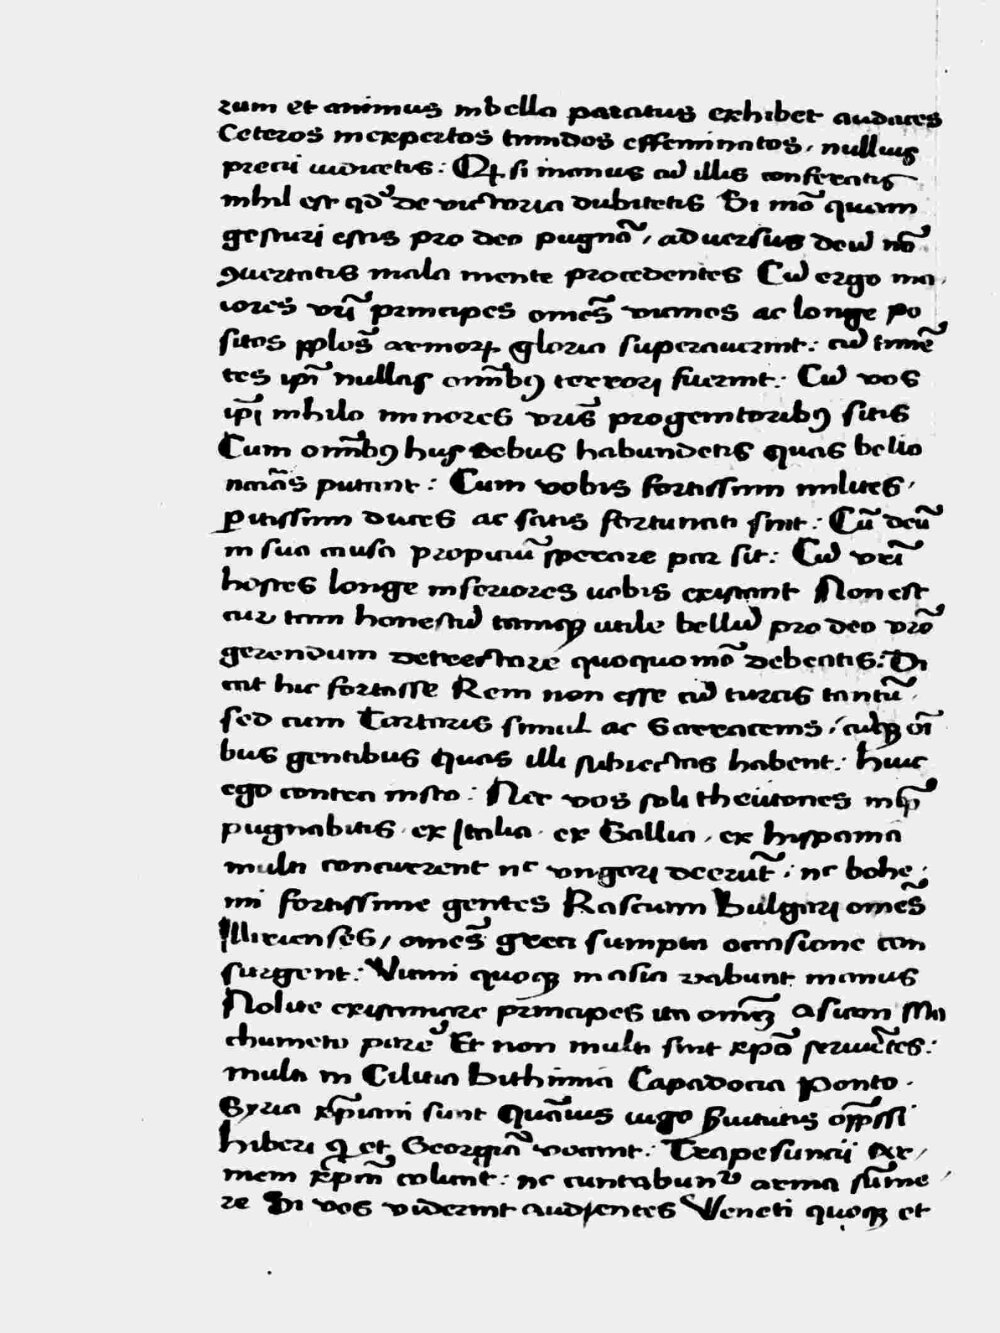 rum et animus in bello paratus exhibet audaces
Ceteros inexpertos timidos effeminatos, nullius
precii iudicetis: Qꝫ si manus cū illis conferatis
nihil est qd̕ de victoria dubitetis Si mō quam
gesturi estis pro deo pugnā, adversus deū nō
ꝯuertatis mala mente procedentes Cū ergo ma,
iores vr̄i principes omēs vicinos ac longe po
sitos pplōs armoꝝ gloria superaverint: cū timē
tes ip̄i nullas om̄ibꝫ terrori fuerint: Cū vos
ip̄i nihilo minores vrīs progenitoribꝫ sitis
Cum om̄ibꝫ hus rebus habundetis quas bello
nccā̄s putant: Cum vobis fortissimi milites,
ꝑitissimi duces ac satis fortunati sint: Cū deū
in sua causa propiciū sperare par sit: Cū vr̄i
hostes longe inferiores uobis existant Non est
cur tam honestū tamqꝫ utile bellū pro deo vrō
gerendum detrectare quoquomō debeatis: Di
cat hic fortasse Rem non esse cū turcis tantū,
sed cum Tartaris simul ac Sarracenis, cūctisqꝫ oī
bus gentibus quas illi subiectas habent: huic
ego contra insto: Nec vos soli theutones in hꝑ̄
pugnabitis, ex Italia, ex Gallia, ex hispania
multi concurrent nc vngari deerūt, nc bohe,
mi fortissime gentes Rasciani Bulgari omēs
Illiricenses, omēs greci sumpta occasione con
surgent: Viani quoqꝫ in asia vabunt manus
Nolite existimare principes ita omēꝫ asiam Ma
chumeto parē Et non multi sint xp̄o seruiētes:
multi in Cilitia bithinia Capadocia ponto,
Syria xp̄iani sunt Quāuis iugo ẜuitutis opp̄ssi
hiberi qꝫ et Georgiāi vocant: Trapesuncii Ar,
meni xp̄m colunt: nc cuntabunt̕ arma sūme,
re Si vos viderint audientes Veneti quoqꝫ et